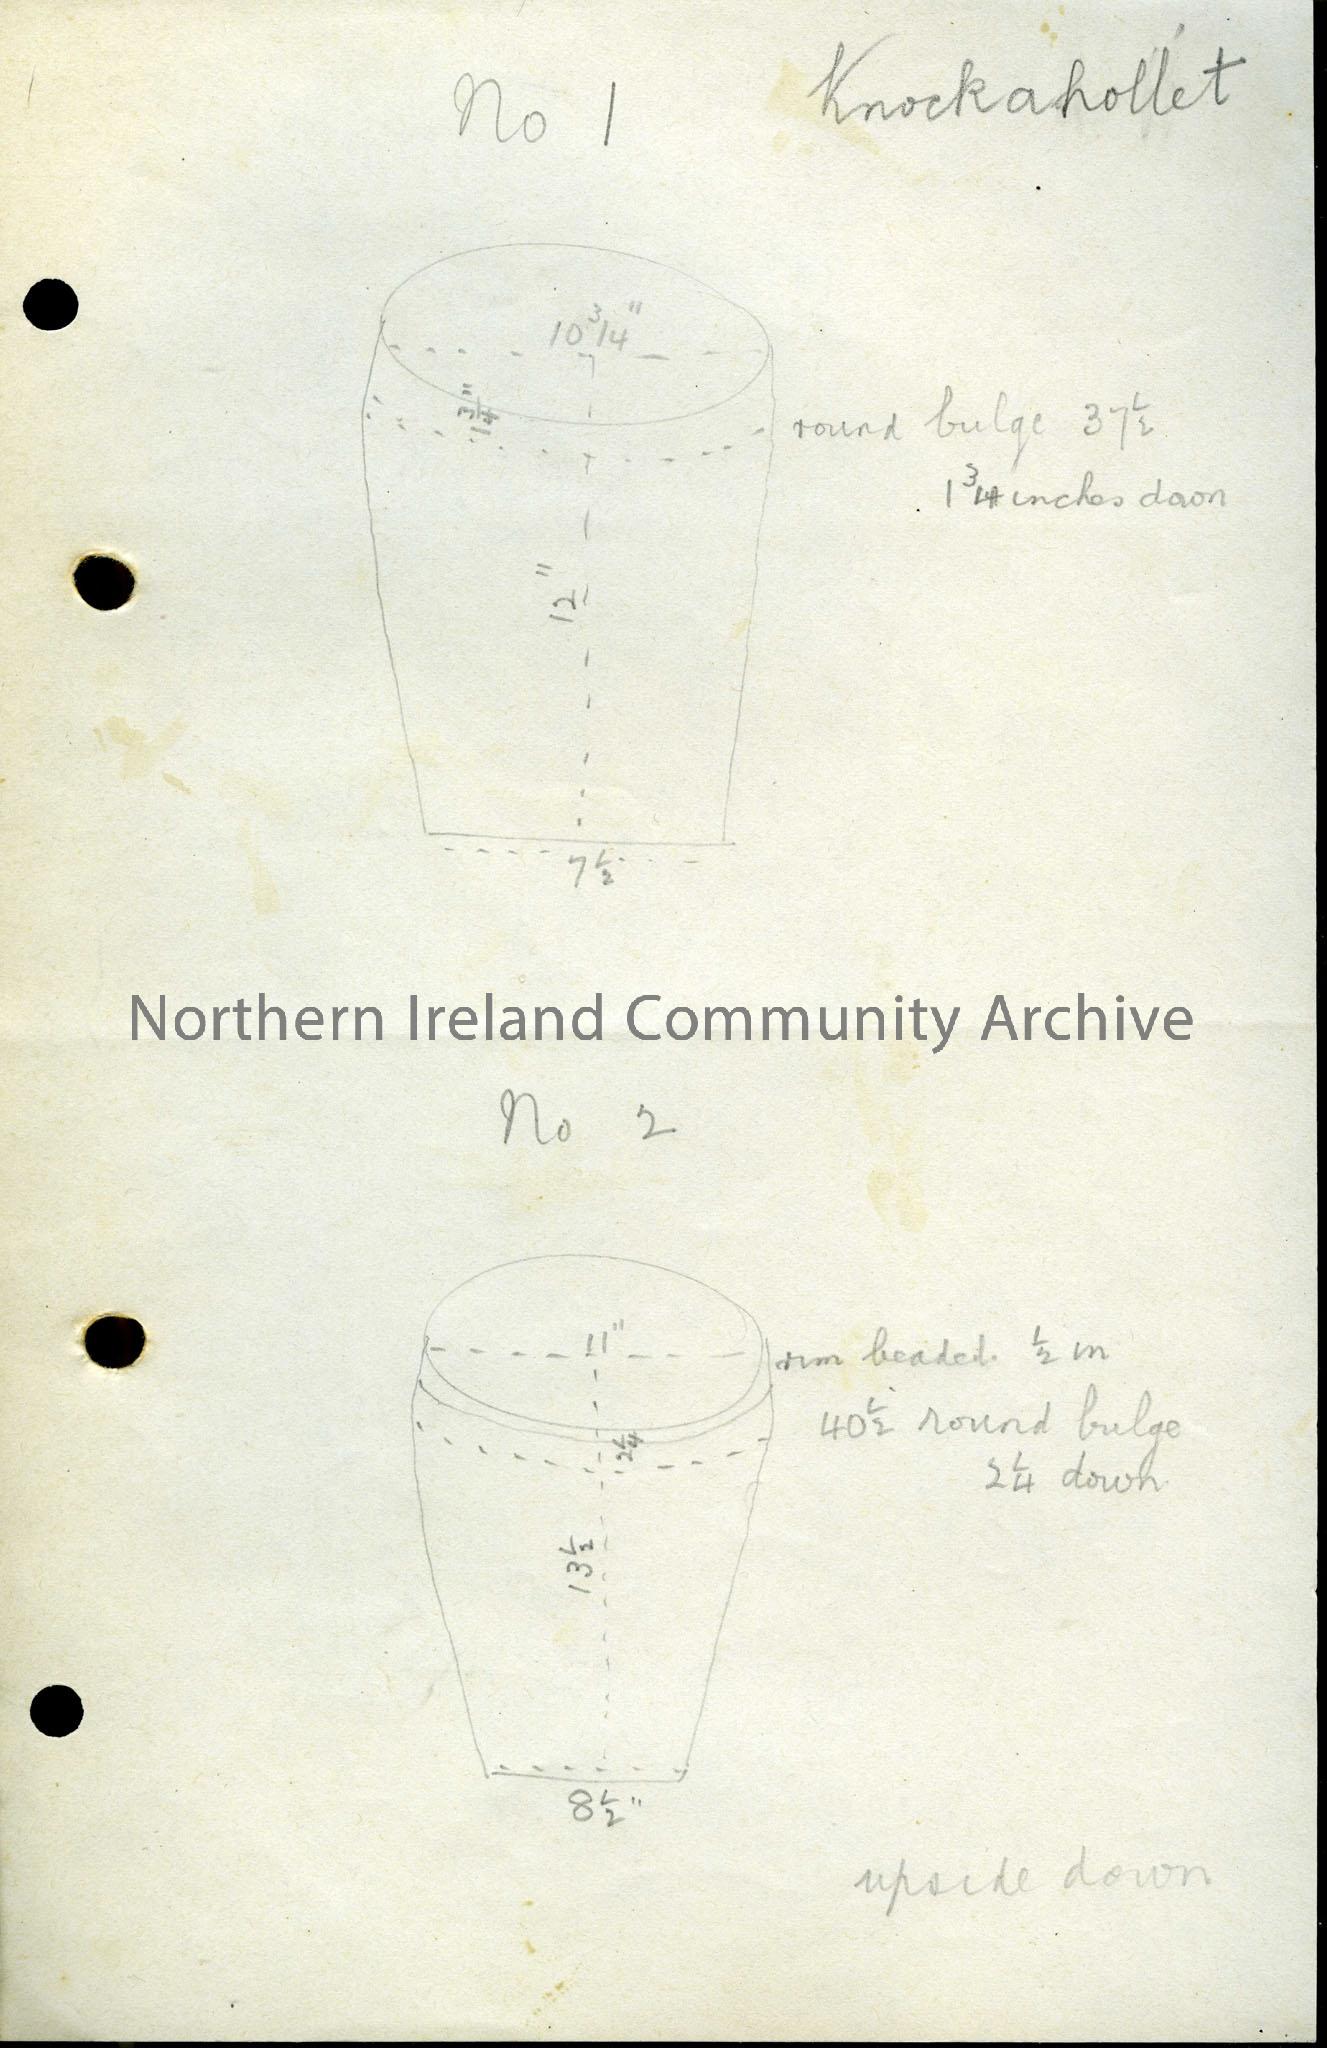 No 1
Knockahollet
10 3/4"
1 3/4"
round bulge 37 1/2
1 3/4 inches down
12"
7 1/2
Northern Ireland Community Archive
No 2
11"
rim beaded. 1/2 in
40 1/2 round bulge
2 1/4
2 1/4 down
13 1/2
8 1/2"
upside down